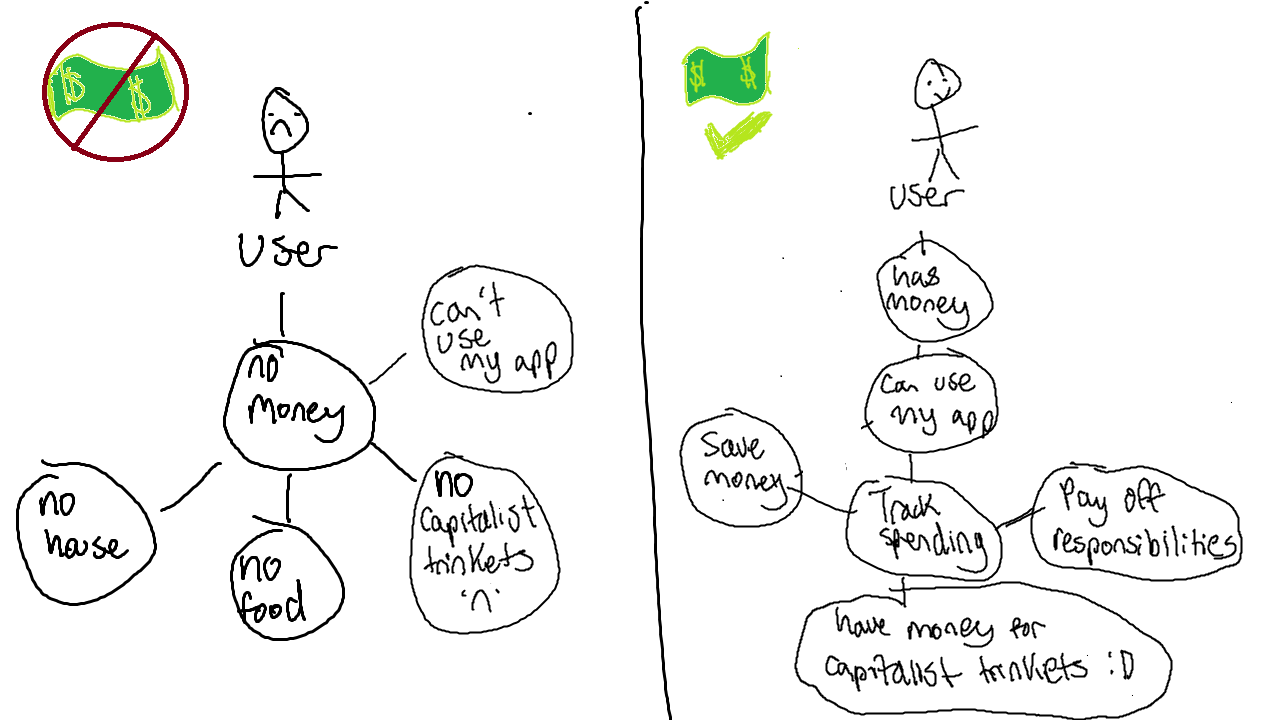 $ $
User
no
money
can't
use
my app
no
house
no
food
no
capitalist
trinkets
'n'
$ $
User
has
money
can use
my app
Save
money
Track
spending
Pay off
responsibilities
have money for
capitalist trinkets :D